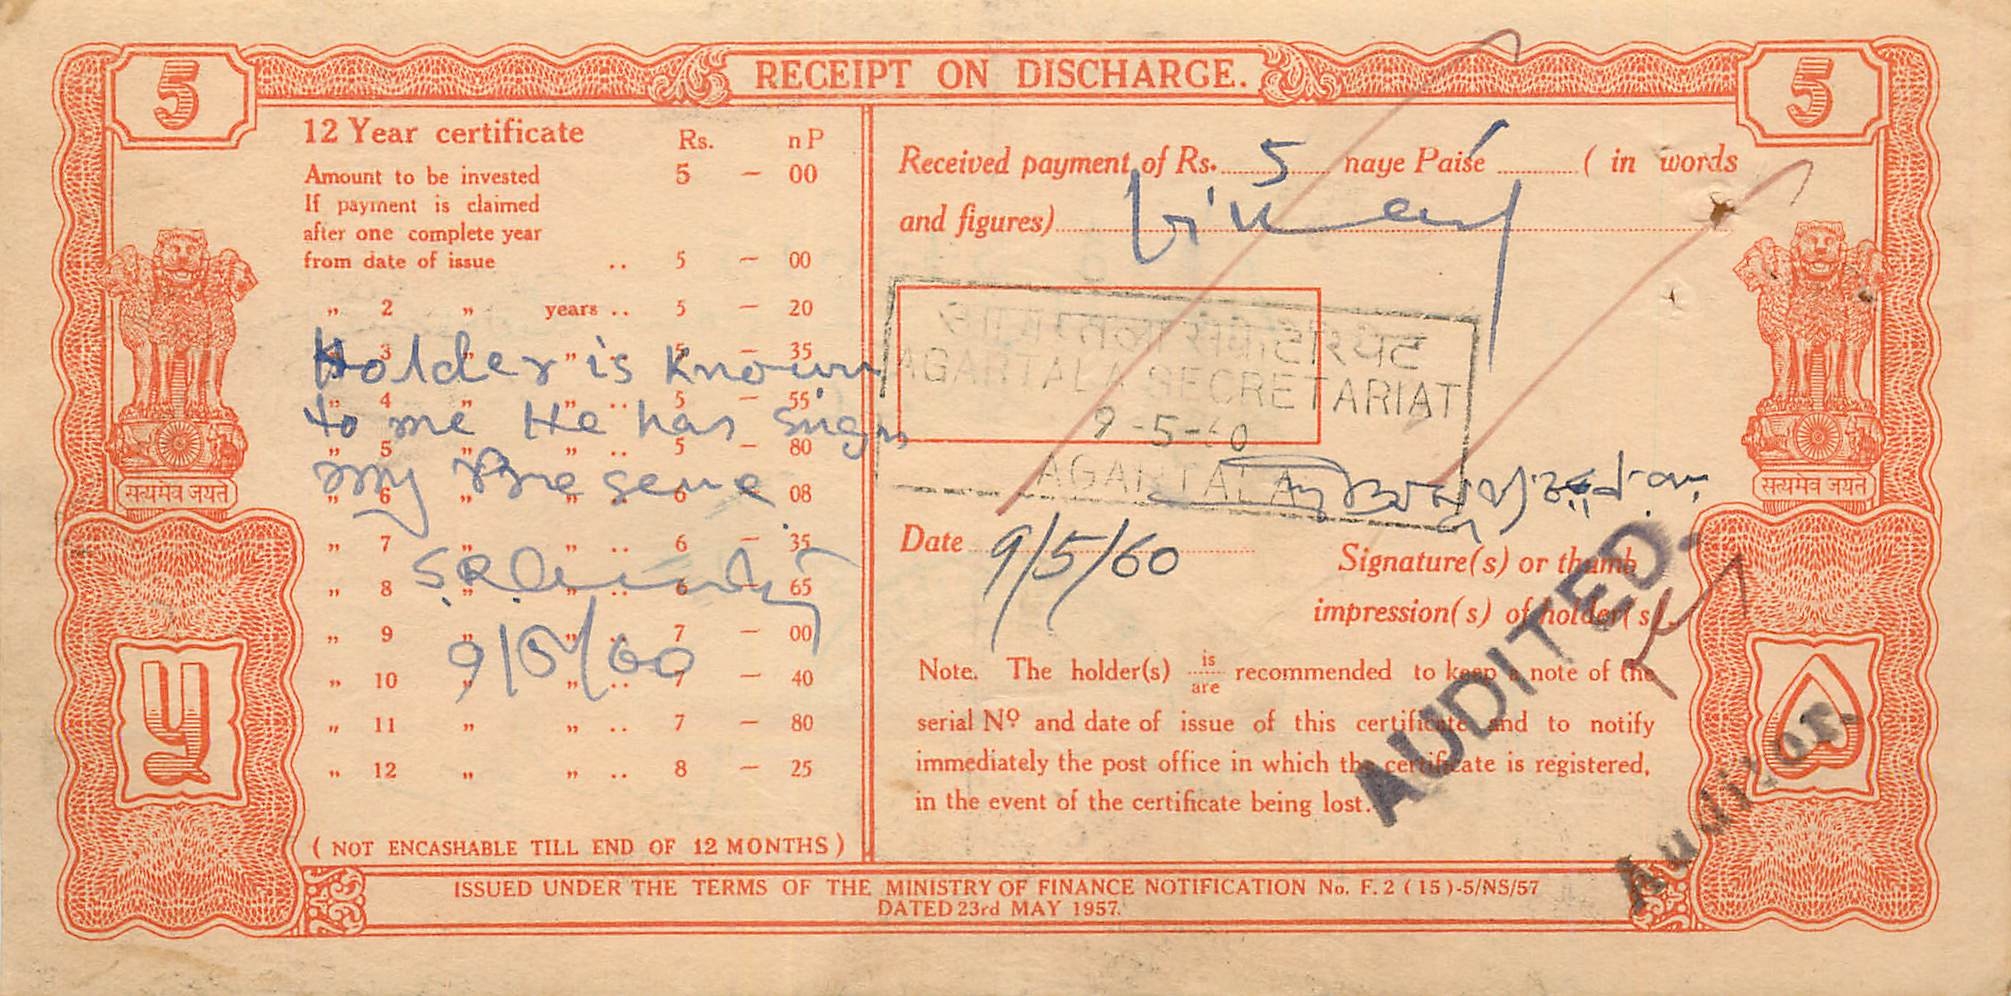 RECEIPT ON DISCHARGE.
5
5
12 Year certificate Rs. nP
Amount to be invested 5 — 00
If payment is claimed
after one complete year
from date of issue .. 5 — 00
„ 2 „ years .. 5 — 20
„ 3 „ „ .. 5 — 35
„ 4 „ „ .. 5 — 55
„ 5 „ „ .. 5 — 80
„ 6 „ „ .. 6 — 08
„ 7 „ „ .. 6 — 35
„ 8 „ „ .. 6 — 65
„ 9 „ „ .. 7 — 00
„ 10 „ „ .. 7 — 40
„ 11 „ „ .. 7 — 80
„ 12 „ „ .. 8 — 25
( NOT ENCASHABLE TILL END OF 12 MONTHS )
Holder is known
to me He has
my
9/5/60
सत्यमेव जयते
५
Received payment of Rs. 5 naye Paise ( in words
and figures)
AGARTALA SECRETARIAT
9-5-60
AGARTALA
Date 9/5/60
Signature(s) or thumb
impression(s) of holder(s).
Note. The holder(s) is/are recommended to keep a note of the
serial Nº and date of issue of this certificate and to notify
immediately the post office in which the certificate is registered,
in the event of the certificate being lost.
AUDITED.
Auditor.
सत्यमेव जयते
ISSUED UNDER THE TERMS OF THE MINISTRY OF FINANCE NOTIFICATION No. F. 2 ( 15 )-5/NS/57
DATED 23rd MAY 1957.